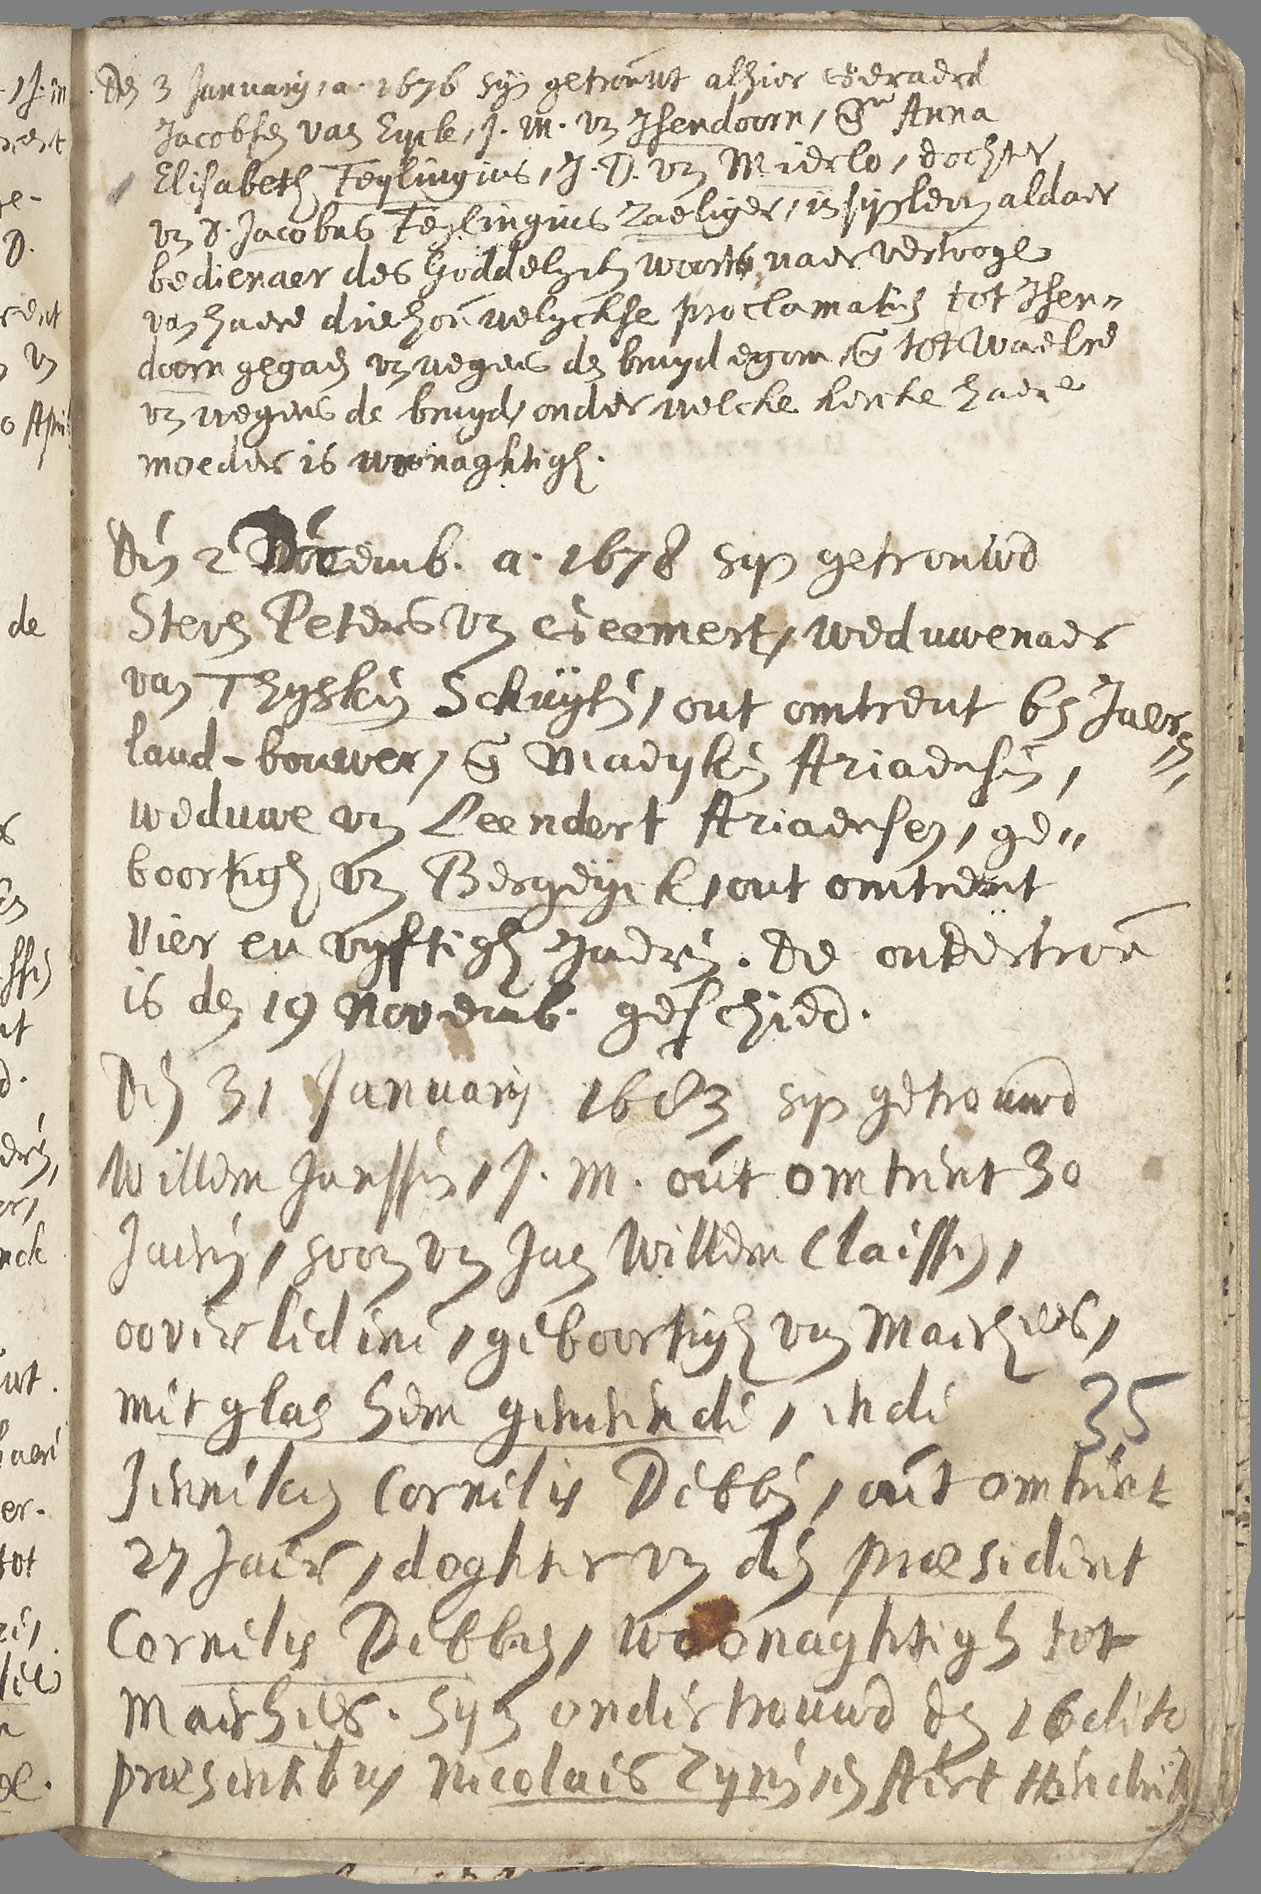 Den 3 January, a. 1676 syn getrouwt alhier Gerardt
Jacobsen van Eyck, J. M. vn Isendoorn, en Anna
Elisabeth Teylingius, J. D. vn Mierlo, dochter
vn D. Jacobus Teylingius Zaeliger, in syn leven aldaer
bedienaer des Goddelycken woorts, naer vertooge
van haere drie houwelyckse proclamatien tot Isen-
doorn gegaen vn wegens den bruydegom, en tot Waelre
vn wegens de bruyd, onder welcke kercke haere
moeder is woonaghtigh.
Den 2 Decemb. a. 1678 syn getrouwd
Steven Peters vn Geemert, weduwenaer
van Thysken Schuyten, out omtrent 65 Jaeren,
land-bouwer, en Madyken Ariaensen,
weduwe vn Leendert Ariaensen, ge-
boortigh vn Bergeyck, out omtrent
vier en vyftigh Jaeren. De ondertrou
is den 19 Novemb. geschied.
Den 31 January 1683 syn getrouwd
Willem Janssen, J. M. out omtrent 30
Jaeren, soon vn Jan Willem Claissen,
overledene, geboortigh van Maerhees,
met glas hem generende, ende
Jenneken Cornelis Debben, out omtrent
27 Jaer, doghter vn den præsident
Cornelis Debben, woonaghtigh tot
Maerhees. Syn ondertrouwd den 16 dito
præsentibus Nicolaes Zynen, en Aert Hendrick
35